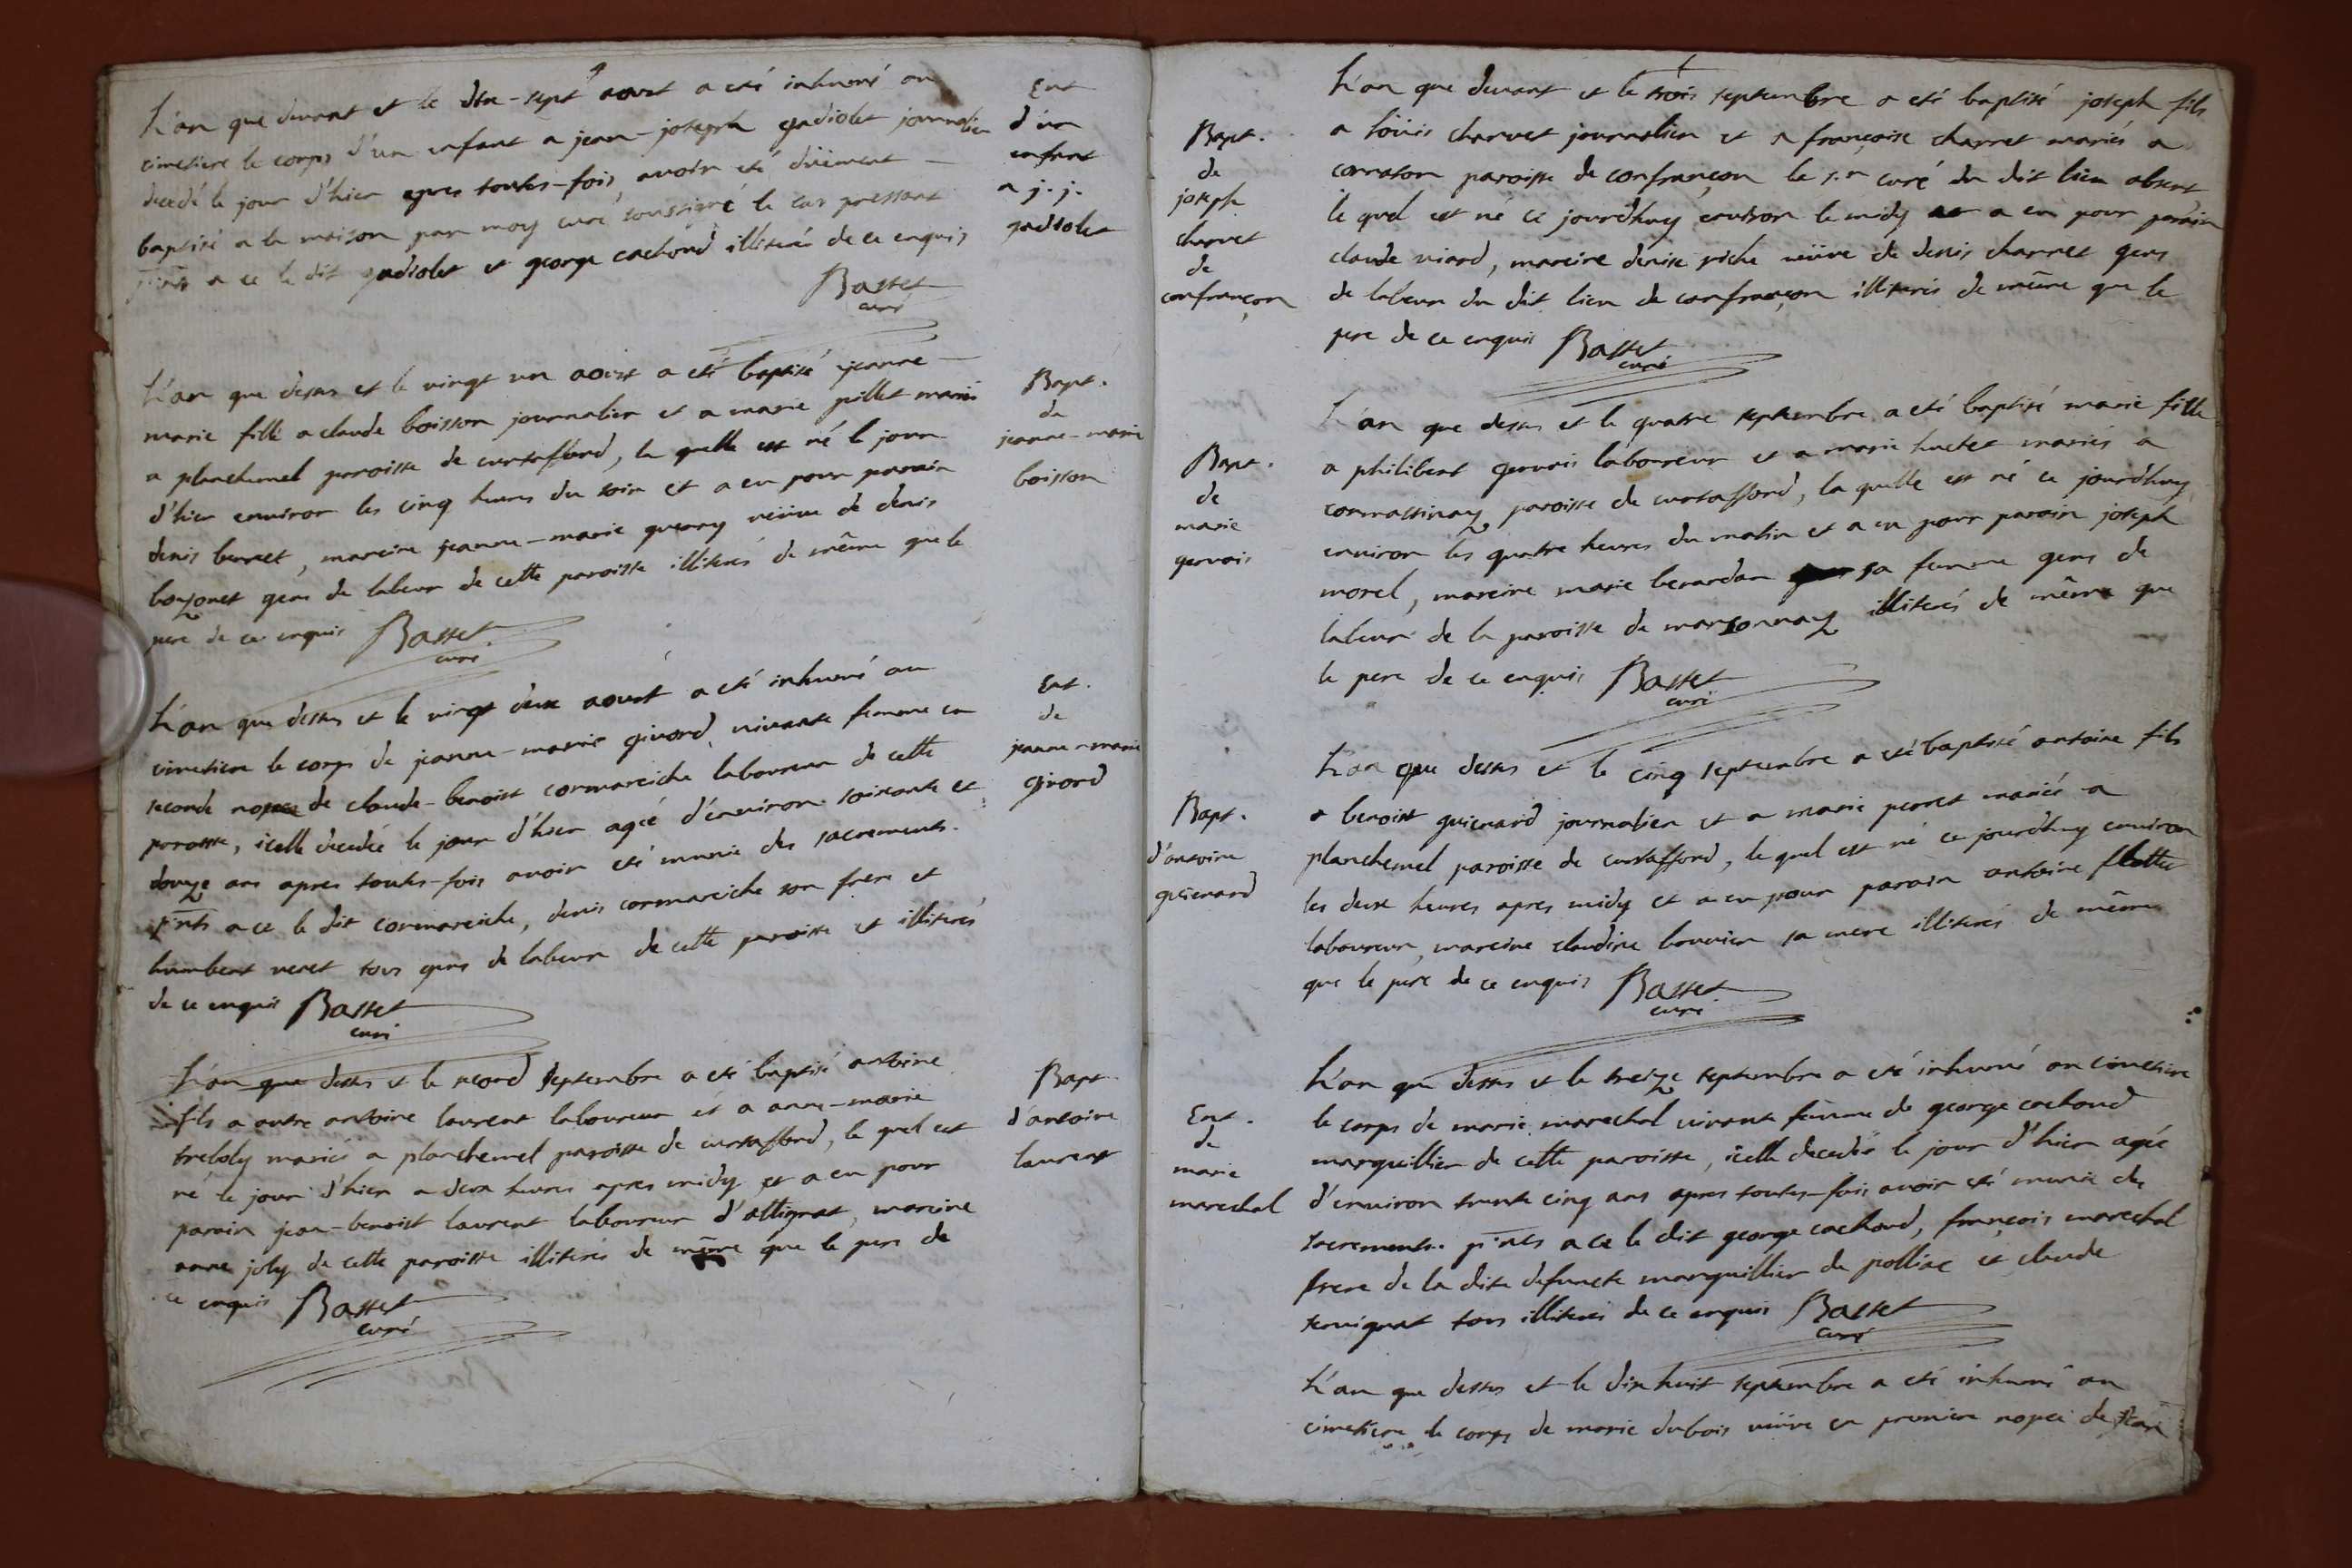 L'an que devant et le dix-sept aoust a eté inhumé au
cimetiere le corps d'un enfant a jean-joseph gadiolet journalier
decedé le jour d'hier apres toutes-fois avoir eté düement
baptisé a la maison par moy curé soussigné le cas pressant
p̅nts a ce le dit gadiolet et george cachond illiterés de ce enquis
Basset
curé
Ent
d'un
enfant
a j. j.
gadiolet
L'an que dessus et le vingt un aoust a eté baptisé jeanne
marie fille a claude boisson journalier et a marie pillet mariés
a planchemel paroisse de curtaffond, la quelle est né le jour
d'hier environ les cinq heures du soir et a eu pour parain
denis berret, mareine jeanne-marie guerry veüve de denis
bozonet gens de labeur de cette paroisse illiterés de même que le
pere de ce enquis Basset
curé
Bapt.
de
jeanne-marie
boisson
L'an que dessus et le vingt deux aoust a eté inhumé au
cimetiere le corps de jeanne-marie givord, vivante femme en
seconde nopce de claude-benoist cormareiche laboureur de cette
paroisse, icelle decedée le jour d'hier agée d'environ soixante et
douze ans apres toutes-fois avoir eté munie des sacrements.
p̅nts a ce le dit cormareiche, denis cormareiche son frere et
humbert veret tous gens de labeur de cette paroisse et illiterés
de ce enquis Basset
curé
Ent.
de
jeanne-marie
givord
L'an que dessus et le second septembre a eté baptisé antoine
fils a autre antoine laurent laboureur et a anne-marie
treboly mariés a planchemel paroisse de curtaffond, le quel est
né le jour d'hier a deux heures apres midy et a eu pour
parain jean-benoist laurent laboureur d'attignat, mareine
anne joly de cette paroisse illiterés de même que le pere de
ce enquis Basset
curé
Bapt.
d'antoine
laurent
L'an que devant et le trois septembre a eté baptisé joseph fils
a loüis charvet journalier et a françoise charret mariés a
corraton paroisse de confrançon le s.r curé du dit lieu absent
le quel est né ce jourd'huy environ le midy a eu pour parain
claude viard, mareine denise riche veüve de denis charret gens
de labeur du dit lieu de confrançon illiterés de même que le
pere de ce enquis Basset
curé
Bapt.
de
joseph
charvet
de
confrançon
L'an que dessus et le quatre septembre a eté baptisé marie fille
a philibert gervais laboureur et a marie huchet mariés a
cormassinay paroisse de curtaffond, la quelle est né ce jourd'huy
environ les quatre heures du matin et a eu pour parain joseph
morel, mareine marie berardan sa femme gens de
labeur de la paroisse de marsonnay illiterés de même que
le pere de ce enquis Basset
curé
Bapt.
de
marie
gervais
L'an que dessus et le cinq septembre a eté baptisé antoine fils
a benoist guienard journalier et a marie perret mariés a
planchemel paroisse de curtaffond, le quel est né ce jourd'huy environ
les deux heures apres midy et a eu pour parain antoine flottet
laboureur, mareine claudine bouvier sa mere illiterés de même
que le pere de ce enquis Basset
curé
Bapt.
d'antoine
guienard
L'an que dessus et le treize septembre a eté inhumé au cimetiere
le corps de marie marechal vivante femme de george cachond
marguillier de cette paroisse, icelle decedée le jour d'hier agée
d'environ trente cinq ans apres toutes-fois avoir eté munie des
sacrements. p̅nts a ce le dit george cachond, françois marechal
frere de la dite defuncte marguillier de polliat et claude
servignat tous illiterés de ce enquis Basset
curé
Ent.
de
marie
marechal
L'an que dessus et le dix huit septembre a eté inhumé au
cimetiere le corps de marie dubois veüve en premiere nopce de jean